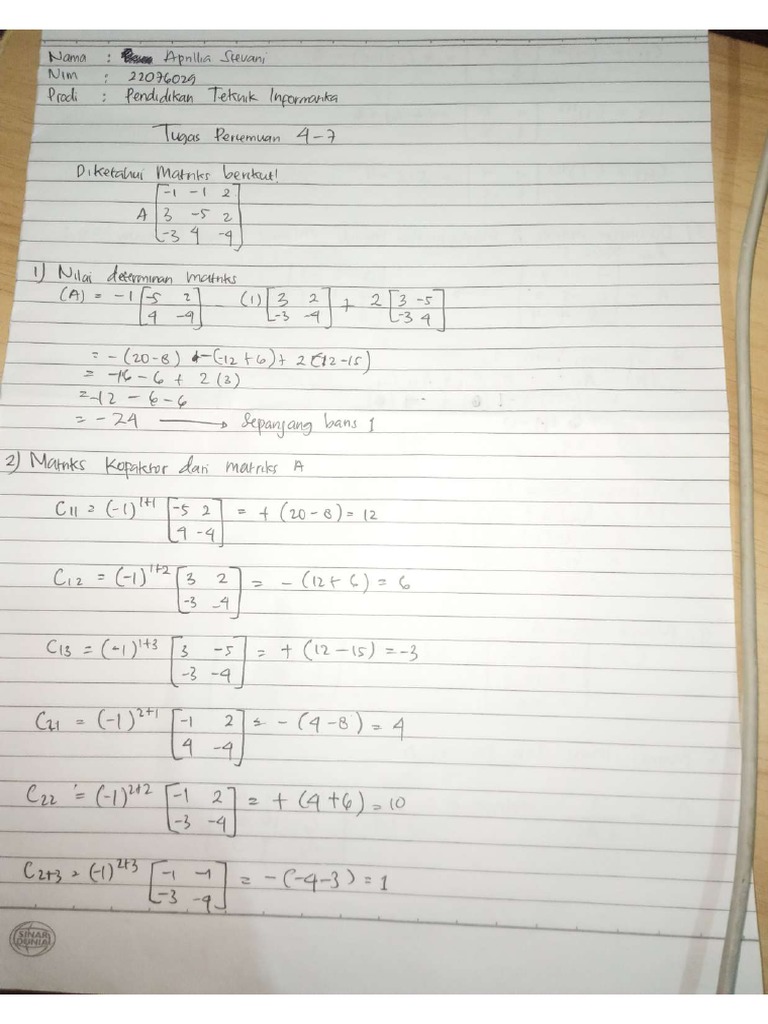 Nama : Aprillia Stevani
Nim : 22076029
Prodi : Pendidikan Teknik Informatika
Tugas Pertemuan 4-7
Diketahui Matriks berikut!
A [-1 -1 2
3 -5 2
-3 4 -4]
1) Nilai determinan matriks
(A) = -1 [-5 2 - (1) [3 2 + 2 [3 -5
4 -4] -3 -4] -3 4]
= -(20-8) + -(-12+6) + 2(12-15)
= -16 - 6 + 2(3)
= -12 - 6 - 6
= -24 → Sepanjang baris 1
2) Matriks Kopaktor dari matriks A
C11 = (-1)^1+1 [-5 2 = + (20-8) = 12
4 -4]
C12 = (-1)^1+2 [3 2 = - (12+6) = 6
-3 -4]
C13 = (-1)^1+3 [3 -5 = + (12-15) = -3
-3 -4]
C21 = (-1)^2+1 [-1 2 = - (4-8) = 4
4 -4]
C22 = (-1)^2+2 [-1 2 = + (4+6) = 10
-3 -4]
C2+3 = (-1)^2+3 [-1 -1 = -(-4-3) = 1
-3 -4]
SINAR
DUNIA